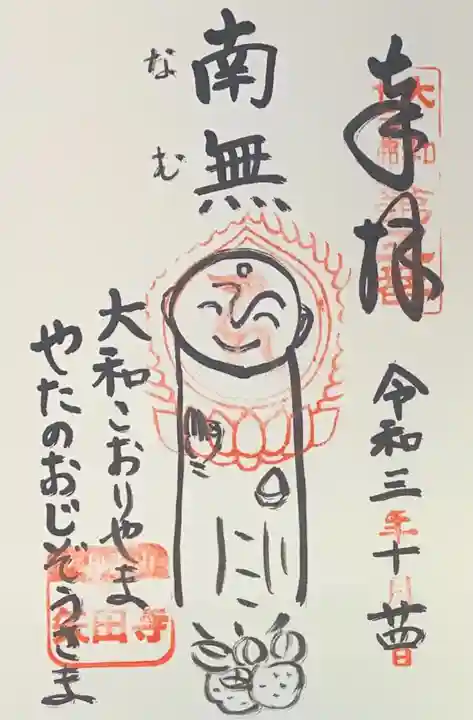 奉拝
令和三年十月廿四日
南無
なむ
大和こおりやま
やたのおじぞうさま
矢田寺